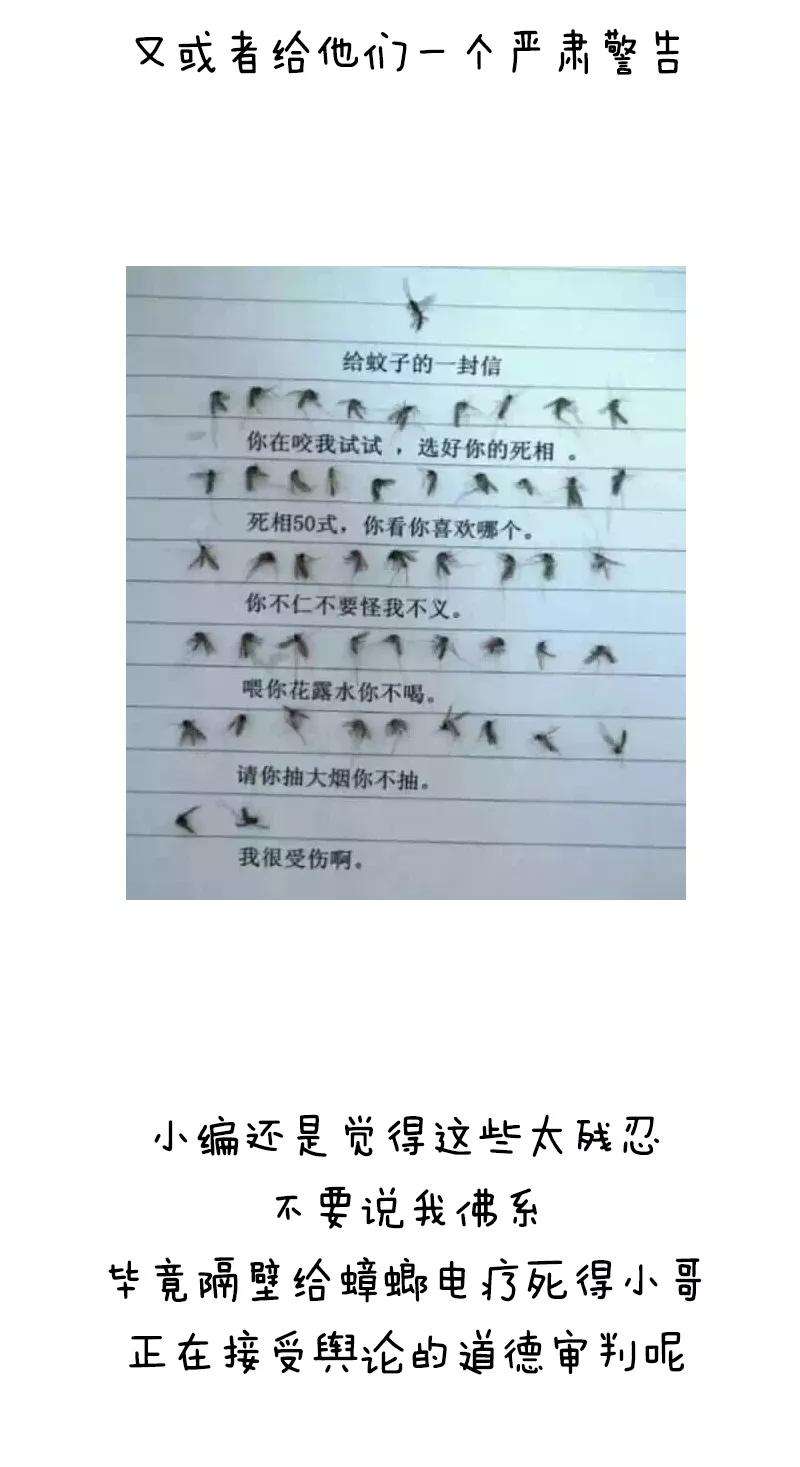 又或者给他们一个严肃警告
给蚊子的一封信
你在咬我试试，选好你的死相。
死相50式，你看你喜欢哪个。
你不仁不要怪我不义。
喂你花露水你不喝。
请你抽大烟你不抽。
我很受伤啊。
小编还是觉得这些太残忍
不要说我佛系
毕竟隔壁给蟑螂电疗死得小哥
正在接受舆论的道德审判呢